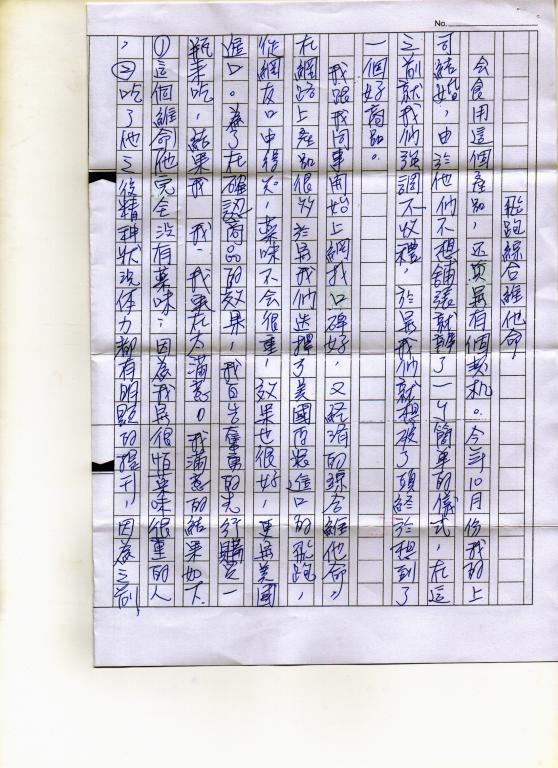 No.
飛跑綜合維他命
會食用這個產品，还真是有個契机。今年10月份我的上
司結婚，由於他們不想舖張就辦了一个簡單的儀式，在這
之前就我们強調不收禮，於是我们就想破了頭終於想到了
一個好商品。
我跟我同事開始上網找口碑好，又経済的綜合維他命，
在網路上產品很多於是我们选擇了美國西思進口的飛跑，
從網友口中得知，藥味不会很重，效果也很好，更是美國
進口。為了在確認商品的效果，我自告奮勇的先行購買一
瓶來吃，結果我 我.我實在太滿意了 我滿意的結果如下
①這個維命他完全沒有藥味：因為我是很怕藥味很重的人
，②吃了他之後精神狀況体力都有明顯的提升，因為之前，